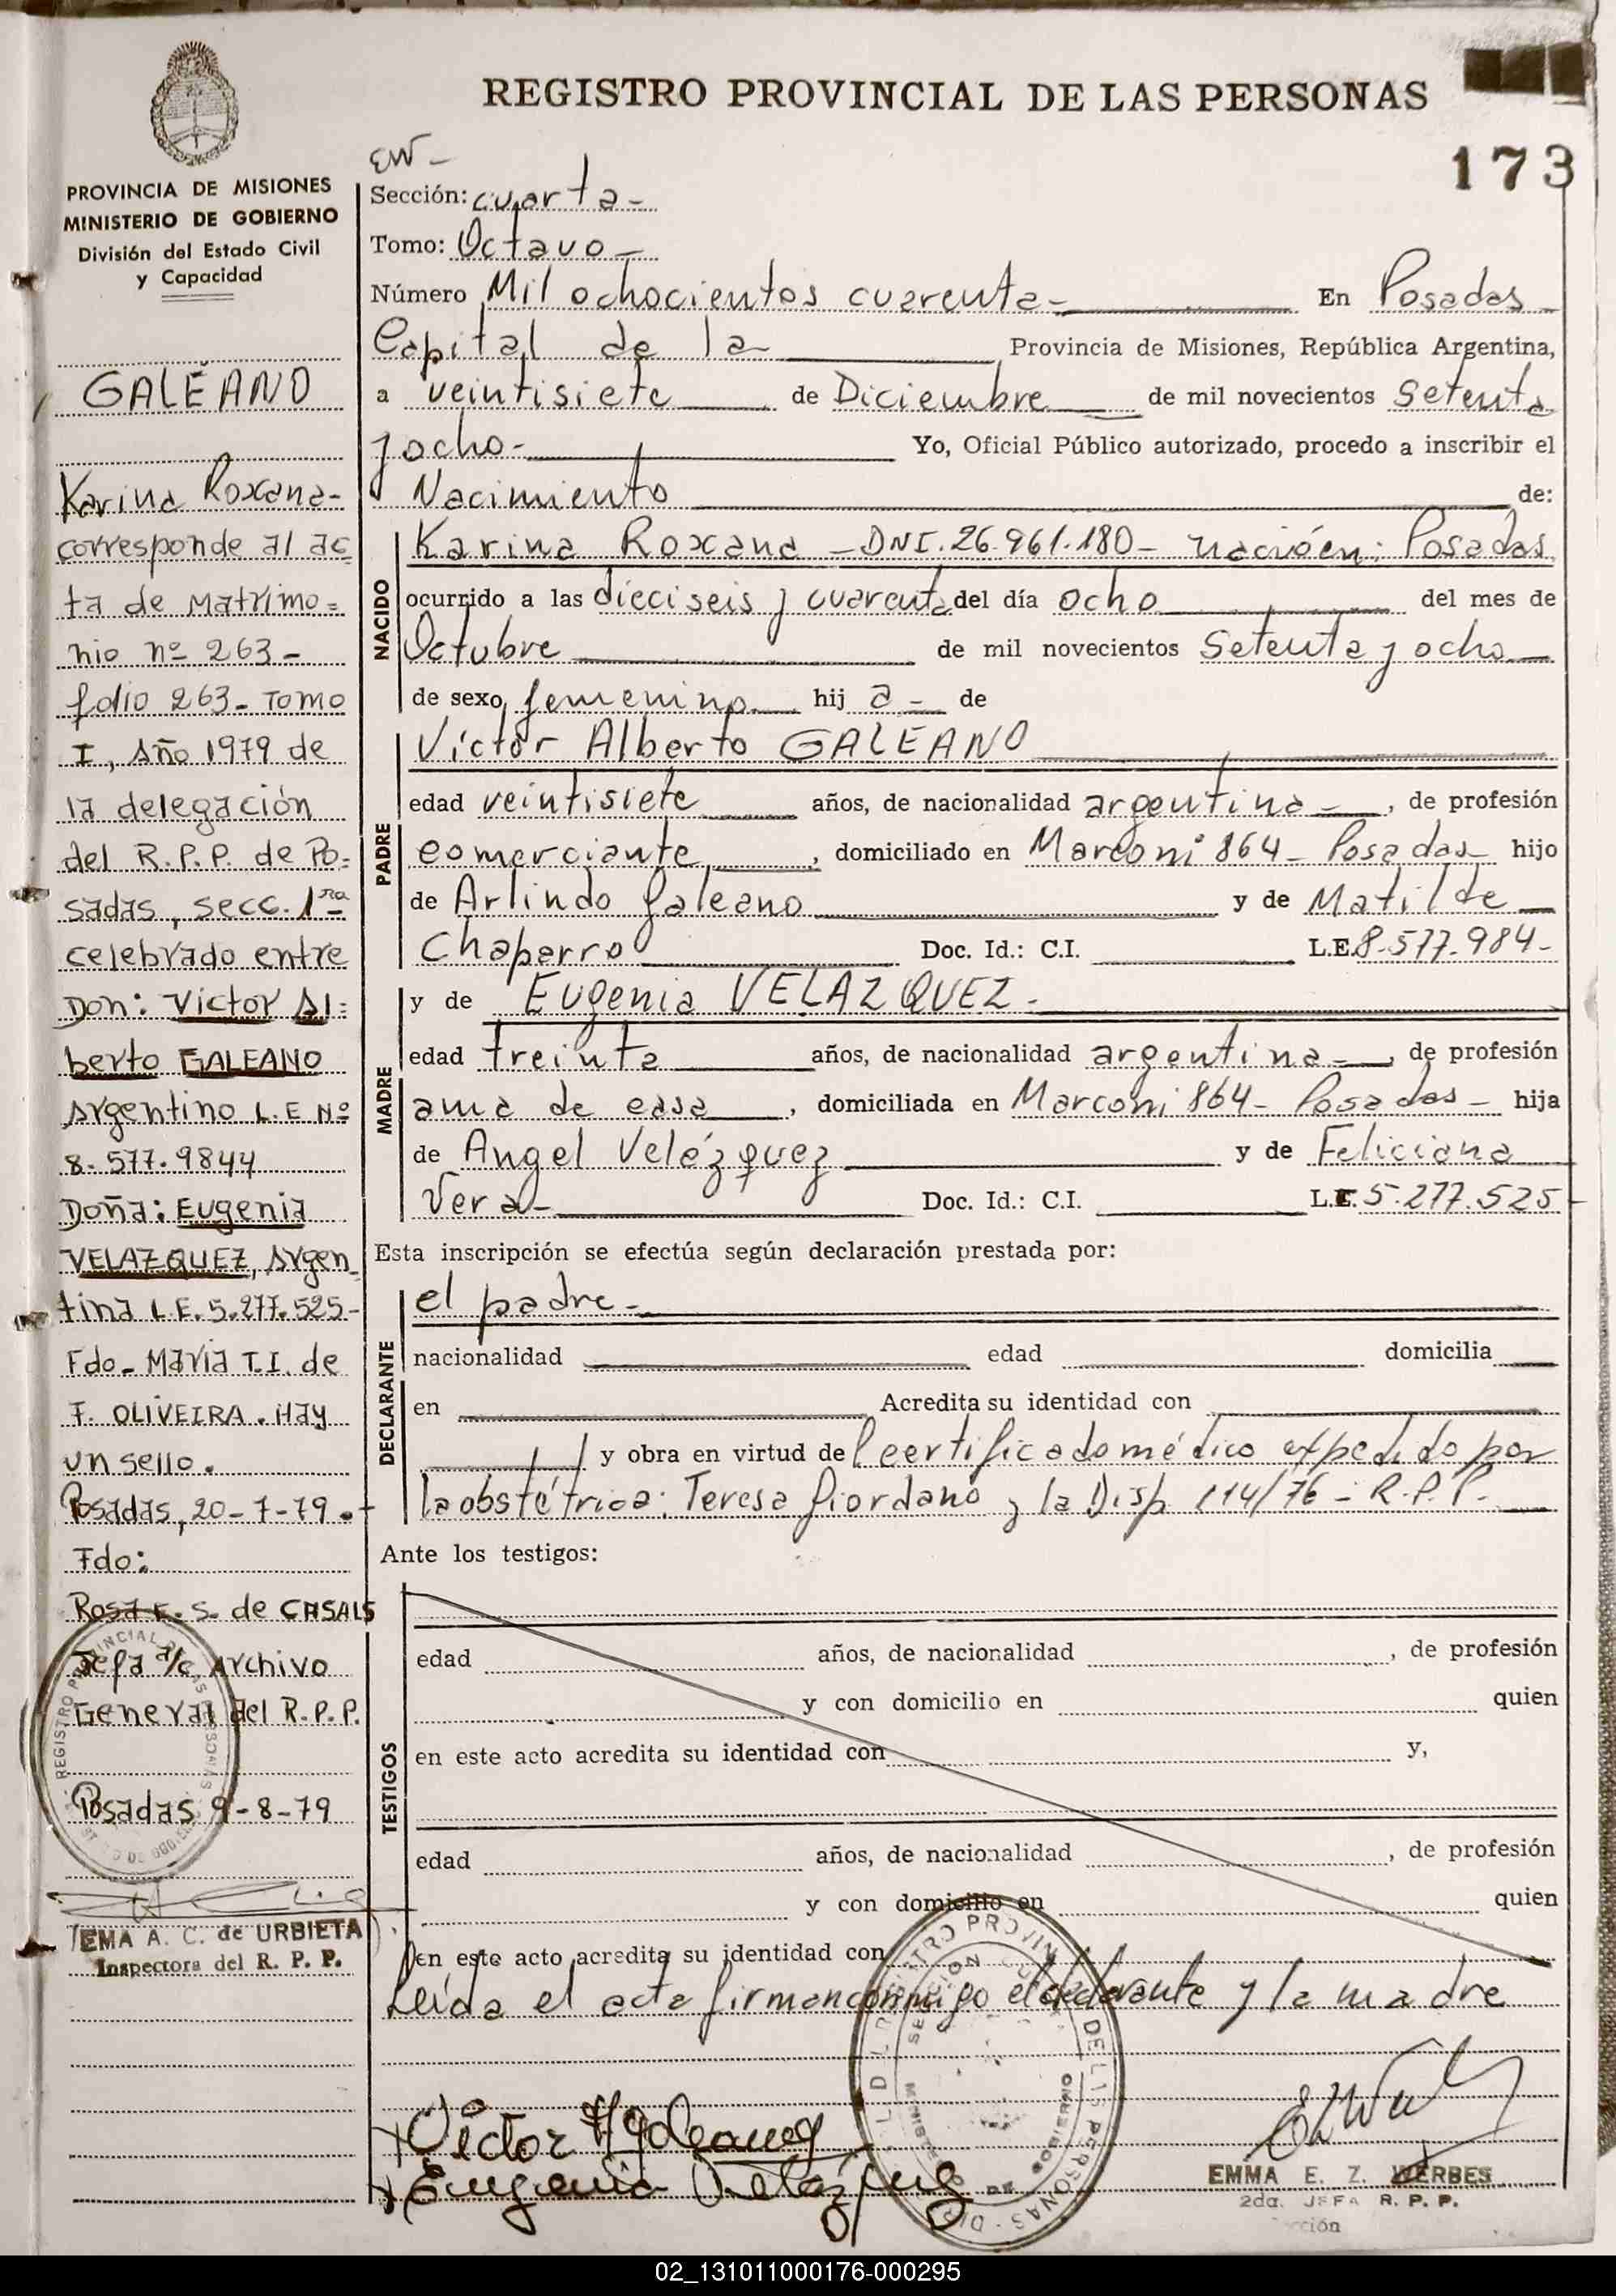 REGISTRO PROVINCIAL DE LAS PERSONAS
173
PROVINCIA DE MISIONES
MINISTERIO DE GOBIERNO
División del Estado Civil
y Capacidad
GALEANO
Karina Roxana-
corresponde al ac
ta de Matrimo=
nio nº 263-
folio 263- Tomo
I, Año 1979 de
la delegación
del R.P.P. de Po=
sadas, secc. 1ra
celebrado entre
Don: Victor Al=
berto GALEANO
Argentino L.E Nº
8.577.9844
Doña: Eugenia
VELAZQUEZ, Argen
tina L.E. 5.277.525-
Fdo- Maria T.I. de
F. OLIVEIRA. Hay
un sello.
Posadas, 20-7-79.
Fdo:
Rosa E. S. de CASALS
Jefa a/c Archivo
General del R.P.P.
Posadas 9-8-79
EMA A. C. de URBIETA
Inspectora del R. P. P.
EW-
Sección: cuarta-
Tomo: Octavo-
Número Mil ochocientos cuarenta- En Posadas
Capital de la Provincia de Misiones, República Argentina,
a veintisiete de Diciembre de mil novecientos setenta
y ocho- Yo, Oficial Público autorizado, procedo a inscribir el
Nacimiento de:
NACIDO
Karina Roxana - DNI. 26.961.180- nació en: Posadas
ocurrido a las dieciseis y cuarenta del día ocho del mes de
Octubre de mil novecientos setenta y ocho
de sexo femenino hij a- de
PADRE
Víctor Alberto GALEANO
edad veintisiete años, de nacionalidad argentina-, de profesión
comerciante, domiciliado en Marconi 864- Posadas hijo
de Arlindo Galeano y de Matilde
Chaparro Doc. Id.: C.I. L.E. 8.577.984-
MADRE
y de Eugenia VELAZQUEZ-
edad treinta años, de nacionalidad argentina-, de profesión
ama de casa, domiciliada en Marconi 864- Posadas- hija
de Angel Velázquez y de Feliciana
Vera- Doc. Id.: C.I. L.C. 5.277.525-
Esta inscripción se efectúa según declaración prestada por:
DECLARANTE
el padre-
nacionalidad edad domicilia
en Acredita su identidad con
y obra en virtud del certificado médico expedido por
la obstétrica: Teresa Giordano y la Disp. 114/76- R.P.P.
Ante los testigos:
TESTIGOS
edad años, de nacionalidad , de profesión
y con domicilio en quien
en este acto acredita su identidad con y,
edad años, de nacionalidad , de profesión
y con domicilio en quien
en este acto acredita su identidad con
Leída el acta firman conmigo el declarante y la madre
Victor A Galeano
Eugenia Velázquez
EMMA E. Z. WERBES
2da. JEFA R. P. P.
02_131011000176-000295